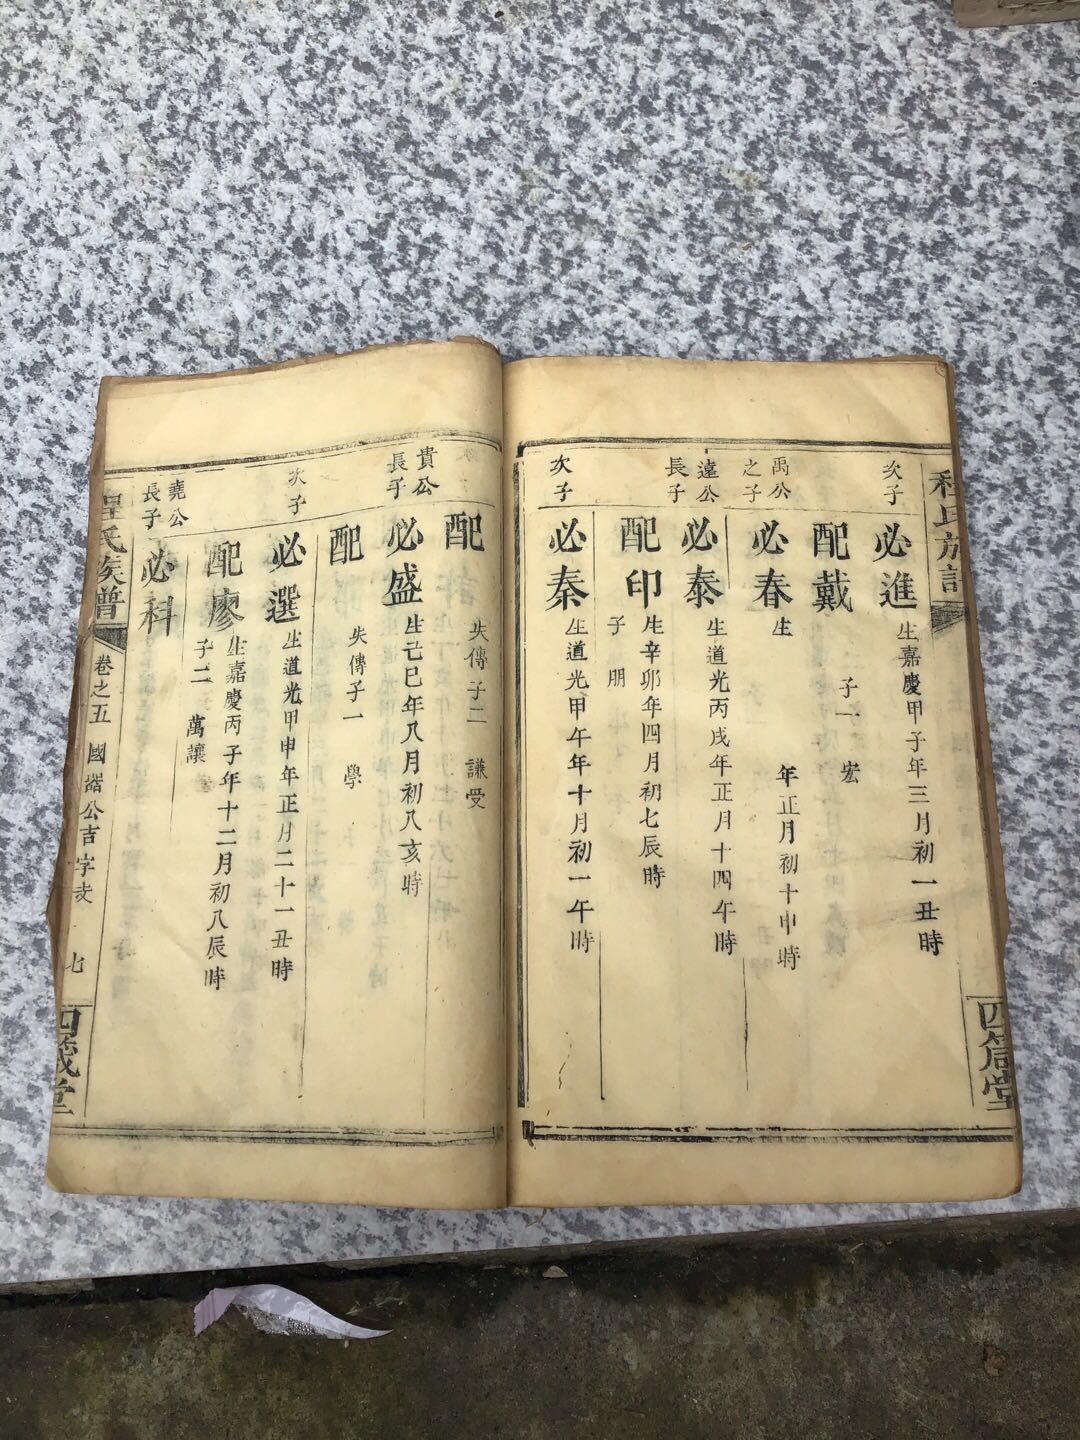 程氏族譜
四箴堂
次子
必進
生嘉慶甲子年三月初一丑時
配戴
子一 宏
禹公
之子
必春
生 年正月初十申時
遠公
長子
必泰
生道光丙戌年正月十四午時
配印
生辛卯年四月初七辰時
子 朋
次子
必秦
生道光甲午年十月初一午時
配
失傳子二 謙受
貴公
長子
必盛
生己巳年八月初八亥時
配
失傳子一 學
次子
必選
生道光甲申年正月二十一丑時
配廖
生嘉慶丙子年十二月初八辰時
子二 萬讓
堯公
長子
必科
程氏族譜
卷之五 國 公吉字
七
四箴堂